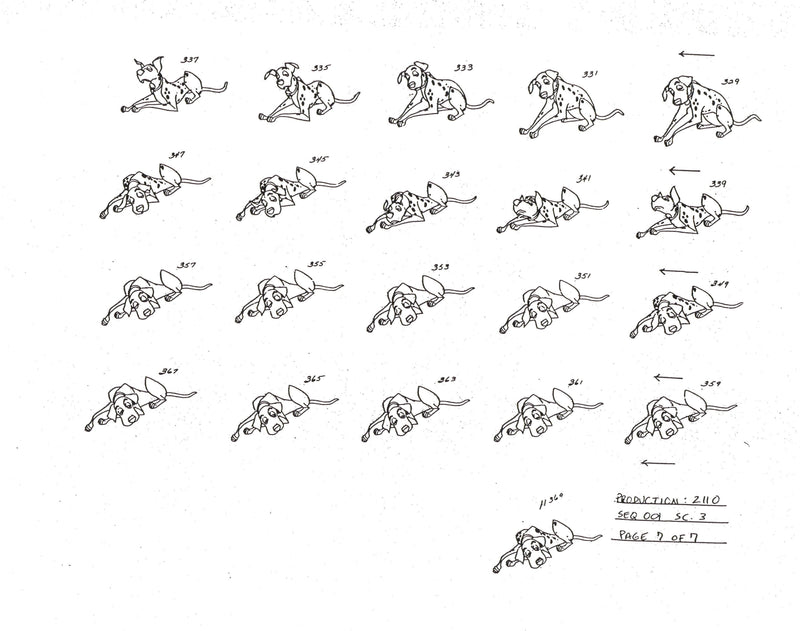 337 335 333 331 329
347 345 343 341 339
357 355 353 351 349
367 365 363 361 359
PRODUCTION: 2110
SEQ 001 SC. 3
PAGE 7 OF 7